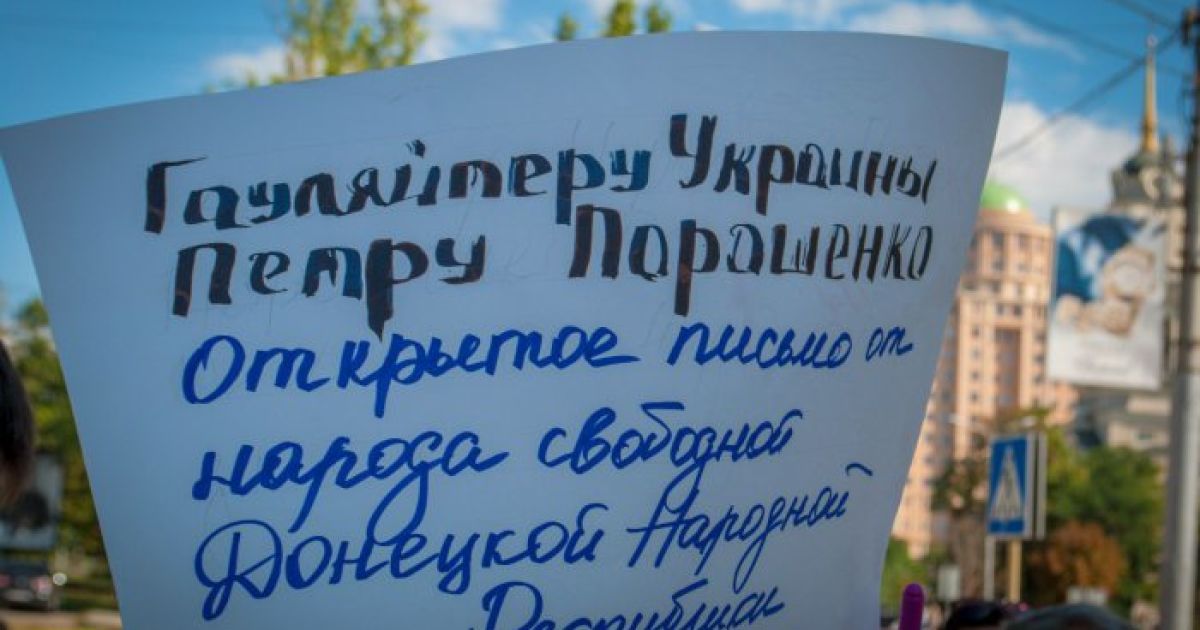 Гауляйтеру Украины
Петру Порошенко
Открытое письмо от
народа свободной
Донецкой Народной
Республики